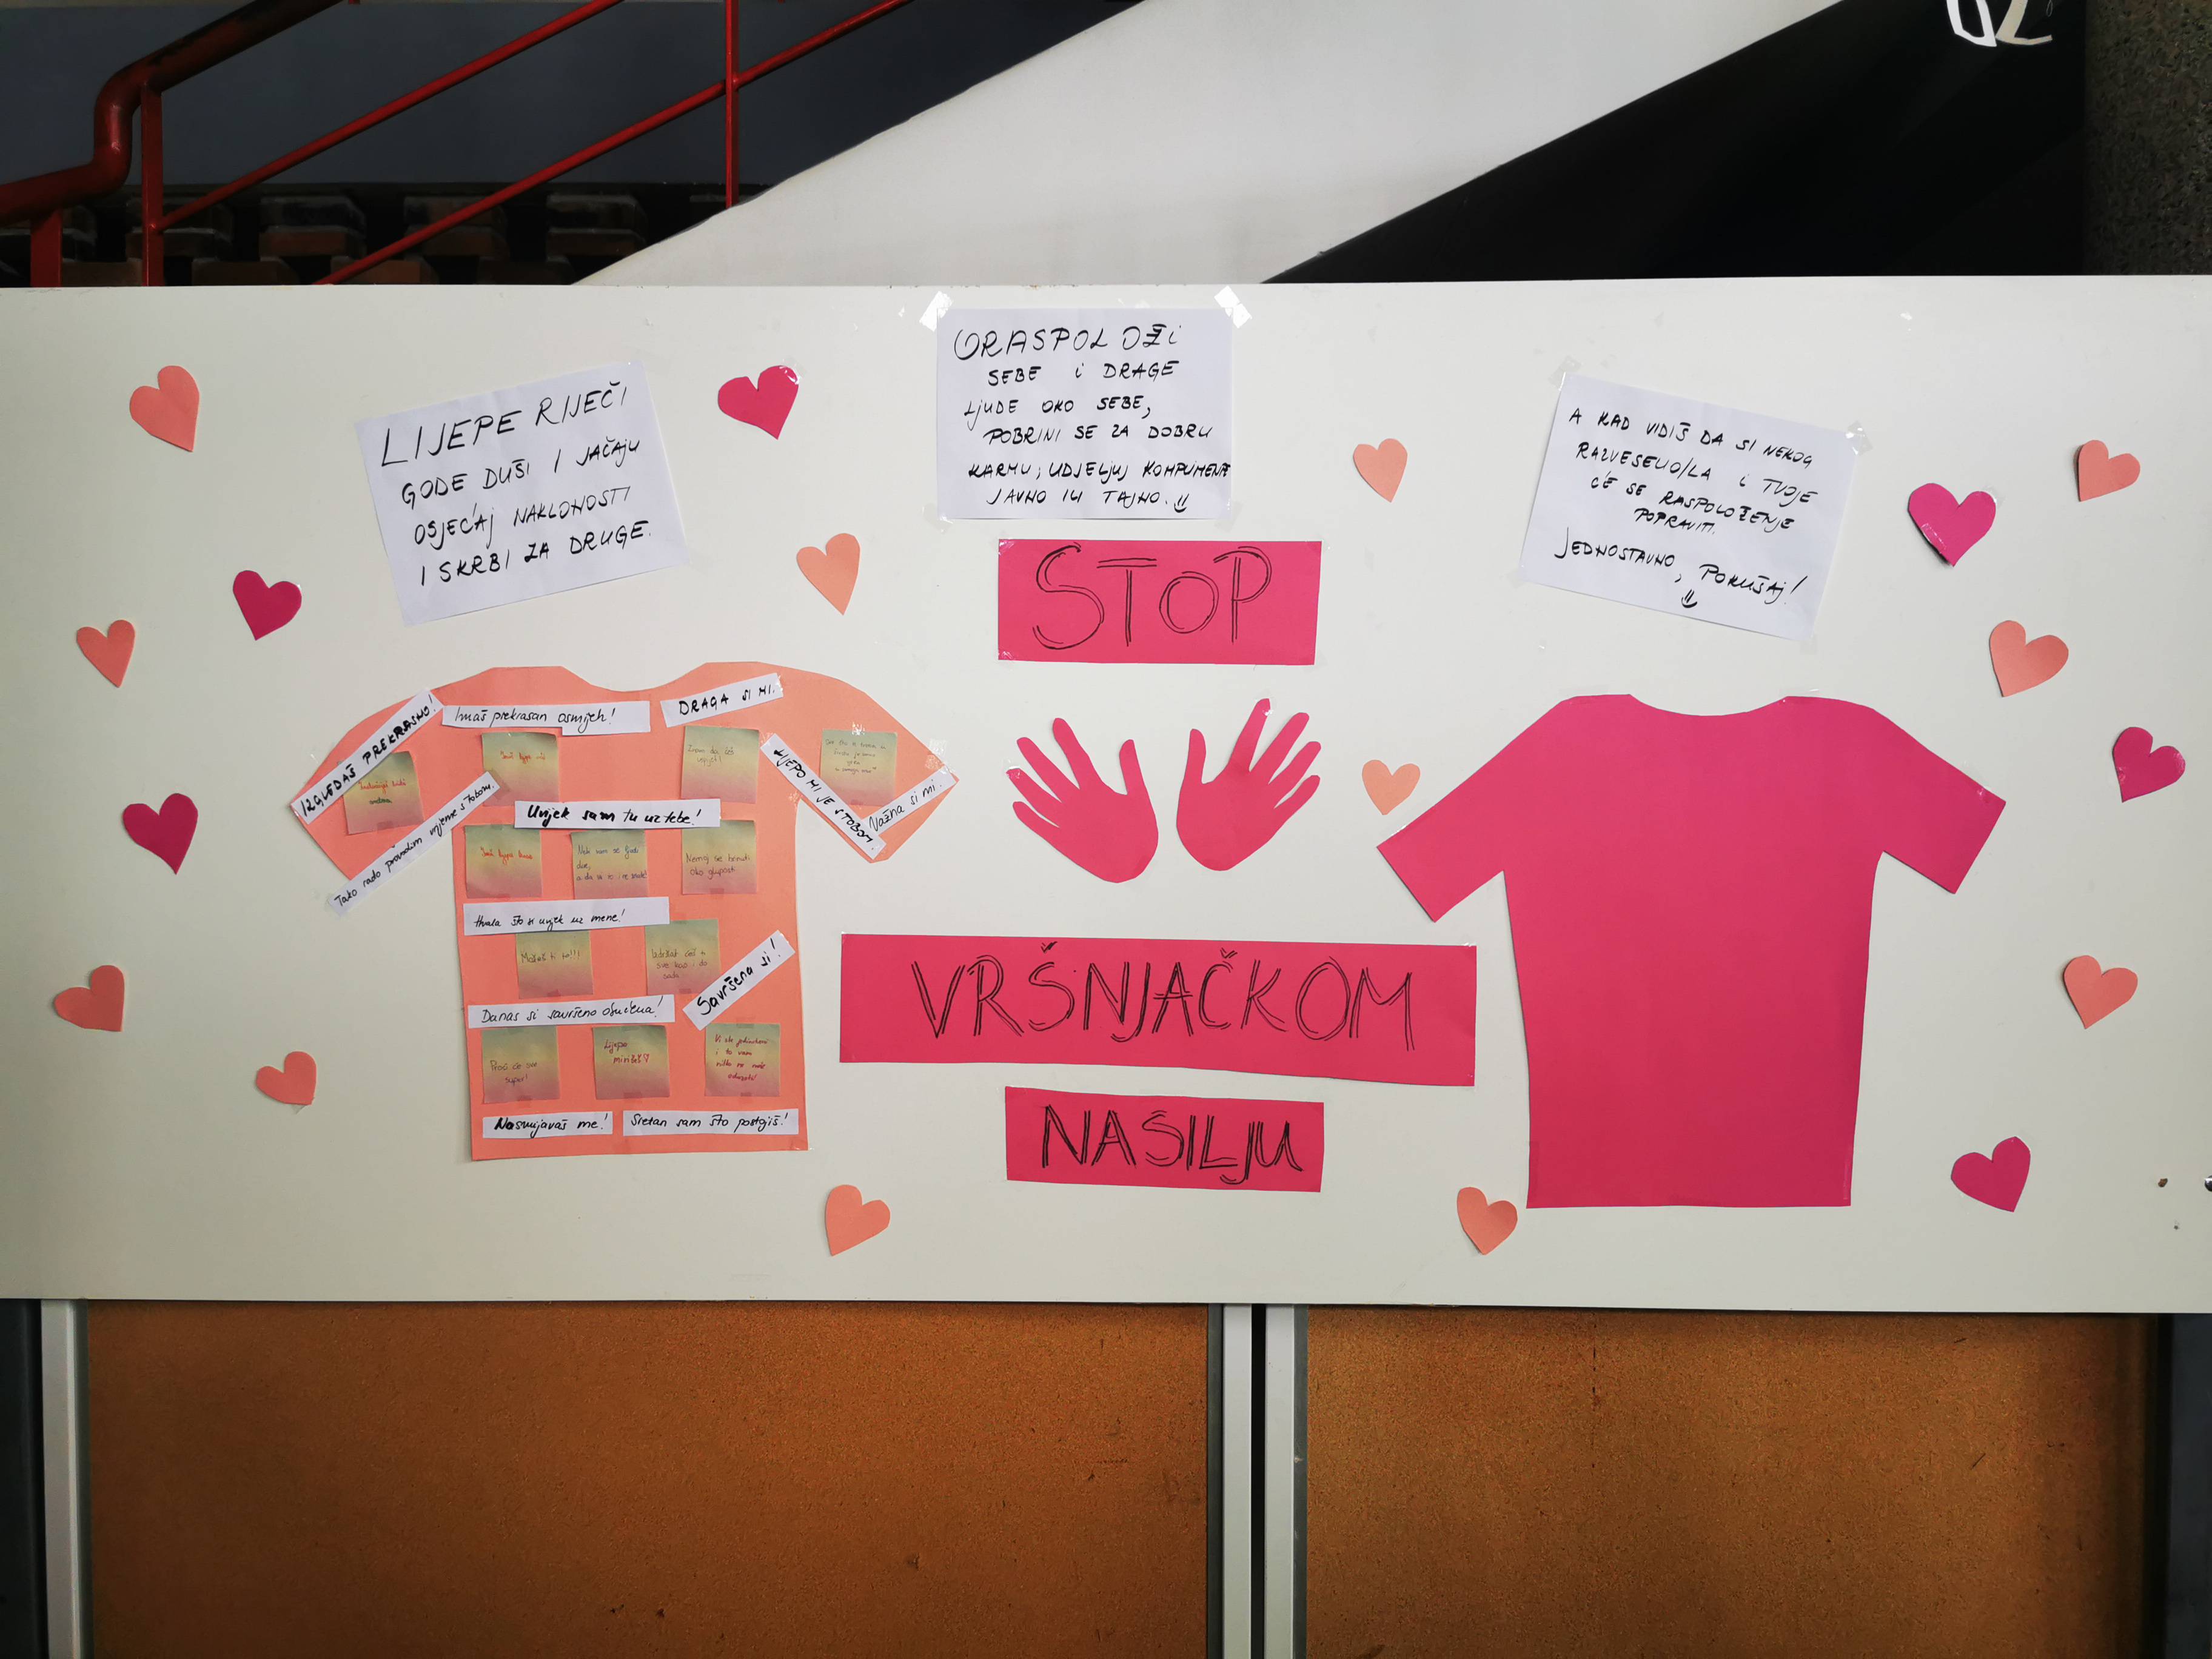 LIJEPE RIJEČI
GODE DUŠI I JAČAJU
OSJEĆAJ NAKLONOSTI
I SKRBI ZA DRUGE.
ORASPOLOŽI
SEBE I DRAGE
LJUDE OKO SEBE,
POBRINI SE ZA DOBRU
KARMU, UDJELJUJ KOMPLIMENTE
JAVNO ILI TAJNO.
A KAD VIDIŠ DA SI NEKOG
RAZVESELIO/LA I TVOJE
ĆE SE RASPOLOŽENJE
POPRAVITI.
JEDNOSTAVNO, POKUŠAJ!
STOP
VRŠNJAČKOM
NASILJU
IZGLEDAŠ PREKRASNO!
Imaš prekrasan osmijeh!
DRAGA SI MI.
Znam da ćeš
uspjeti!
LIJEPO MI JE S TOBOM.
Važna si mi.
Tako rado provodim vrijeme s tobom.
Uvijek sam tu uz tebe!
Nemoj se brinuti
oko gluposti
Hvala što si uvijek uz mene!
Možeš ti to!!!
Izdržat ćeš u
sve kao i do
sada
Savršena si!
Danas si savršeno obučena!
Proći će sve
super!
Lijepo
mirišiš
Nasmijavaš me!
Sretan sam što postojiš!